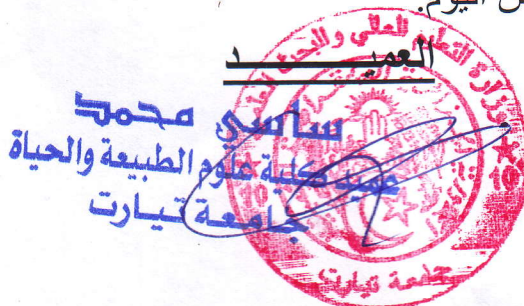 اليوم.
العميـــــــد
ساسي محمد
عميد كلية علوم الطبيعة والحياة
جامعة تيارت
وزارة التعليم العالي و البحث العلمي
جامعة تيارت